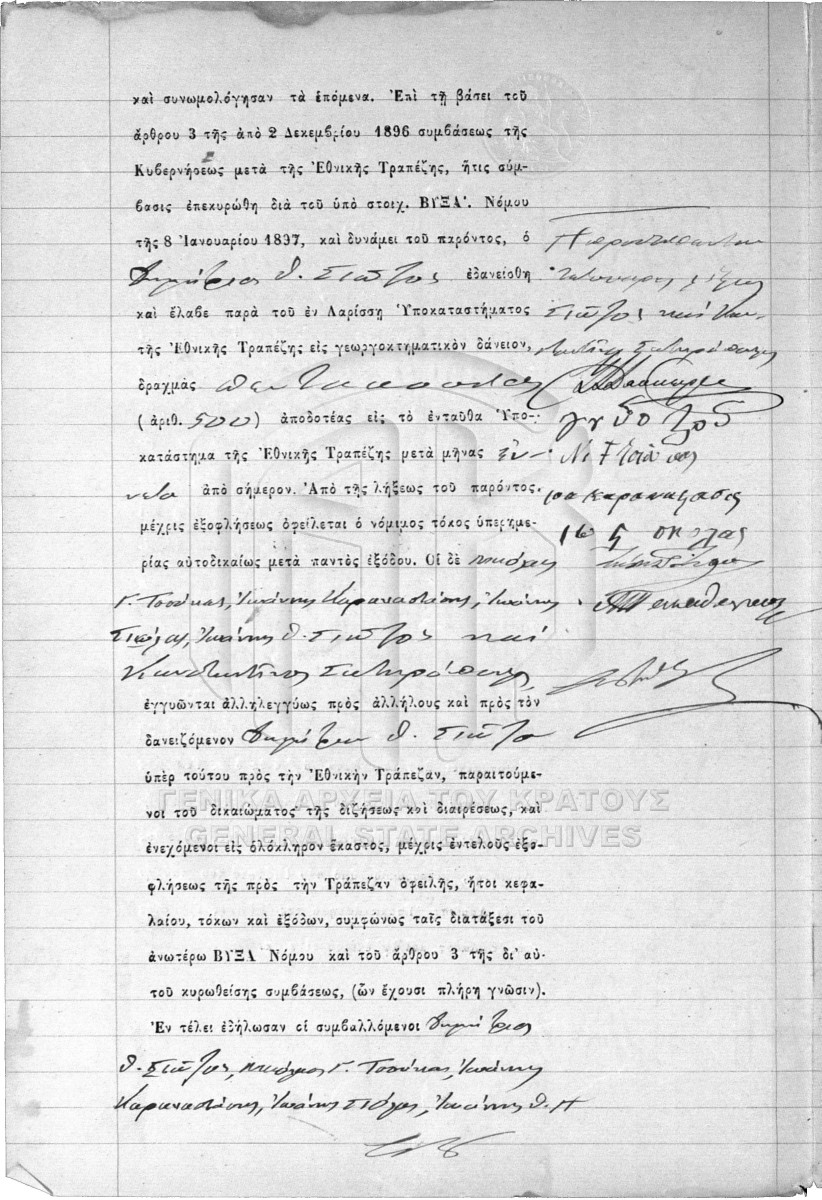 καὶ συνωμολόγησαν τὰ ἑπόμενα. Ἐπὶ τῇ βάσει τοῦ
ἄρθρου 3 τῆς ἀπὸ 2 Δεκεμβρίου 1896 συμβάσεως τῆς
Κυβερνήσεως μετὰ τῆς Ἐθνικῆς Τραπέζης, ἥτις σύμ-
βασις ἐπεκυρώθη διὰ τοῦ ὑπὸ στοιχ. ΒΥΞΑ'. Νόμου
τῆς 8 Ἰανουαρίου 1897, καὶ δυνάμει τοῦ παρόντος, ὁ
Δημήτριος Θ. Σιῶζος ἐδανείσθη
καὶ ἔλαβε παρὰ τοῦ ἐν Λαρίσσῃ Ὑποκαταστήματος
τῆς Ἐθνικῆς Τραπέζης εἰς γεωργοκτηματικὸν δάνειον,
δραχμὰς πεντακοσίας
(ἀριθ. 500) ἀποδοτέας εἰς τὸ ἐνταῦθα Ὑπο-
κατάστημα τῆς Ἐθνικῆς Τραπέζης μετὰ μῆνας ἐν-
νέα ἀπὸ σήμερον. Ἀπὸ τῆς λήξεως τοῦ παρόντος
μέχρις ἐξοφλήσεως ὀφείλεται ὁ νόμιμος τόκος ὑπερημε-
ρίας αὐτοδικαίως μετὰ παντὸς ἐξόδου. Οἱ δὲ
Γ. Τσούκας, Ἰωάννης Καραναστάσης, Ἰωάννης
Σιόλας, Ἰωάννης Θ. Σιῶζος καὶ
Κωνσταντῖνος Σωτηρόπουλος,
ἐγγυῶνται ἀλληλεγγύως πρὸς ἀλλήλους καὶ πρὸς τὸν
δανειζόμενον Δημήτριον Θ. Σιῶζον
ὑπὲρ τούτου πρὸς τὴν Ἐθνικὴν Τράπεζαν, παραιτούμε-
νοι τοῦ δικαιώματος τῆς διζήσεως καὶ διαιρέσεως, καὶ
ἐνεχόμενοι εἰς ὁλόκληρον ἕκαστος, μέχρις ἐντελοῦς ἐξο-
φλήσεως τῆς πρὸς τὴν Τράπεζαν ὀφειλῆς, ἤτοι κεφα-
λαίου, τόκων καὶ ἐξόδων, συμφώνως ταῖς διατάξεσι τοῦ
ἀνωτέρω ΒΥΞΑ Νόμου καὶ τοῦ ἄρθρου 3 τῆς δι' αὐ-
τοῦ κυρωθείσης συμβάσεως, (ὧν ἔχουσι πλήρη γνῶσιν).
Ἐν τέλει ἐδήλωσαν οἱ συμβαλλόμενοι Δημήτριος
Θ. Σιῶζος, Γ. Τσούκας, Ἰωάννης
Καραναστάσης, Ἰωάννης Σιόλας, Ἰωάννης Θ.
Σιῶζος καὶ Κων-
Σωτηρόπουλος
καραναστασις
ΓΕΝΙΚΑ ΑΡΧΕΙΑ ΤΟΥ ΚΡΑΤΟΥΣ
GENERAL STATE ARCHIVES